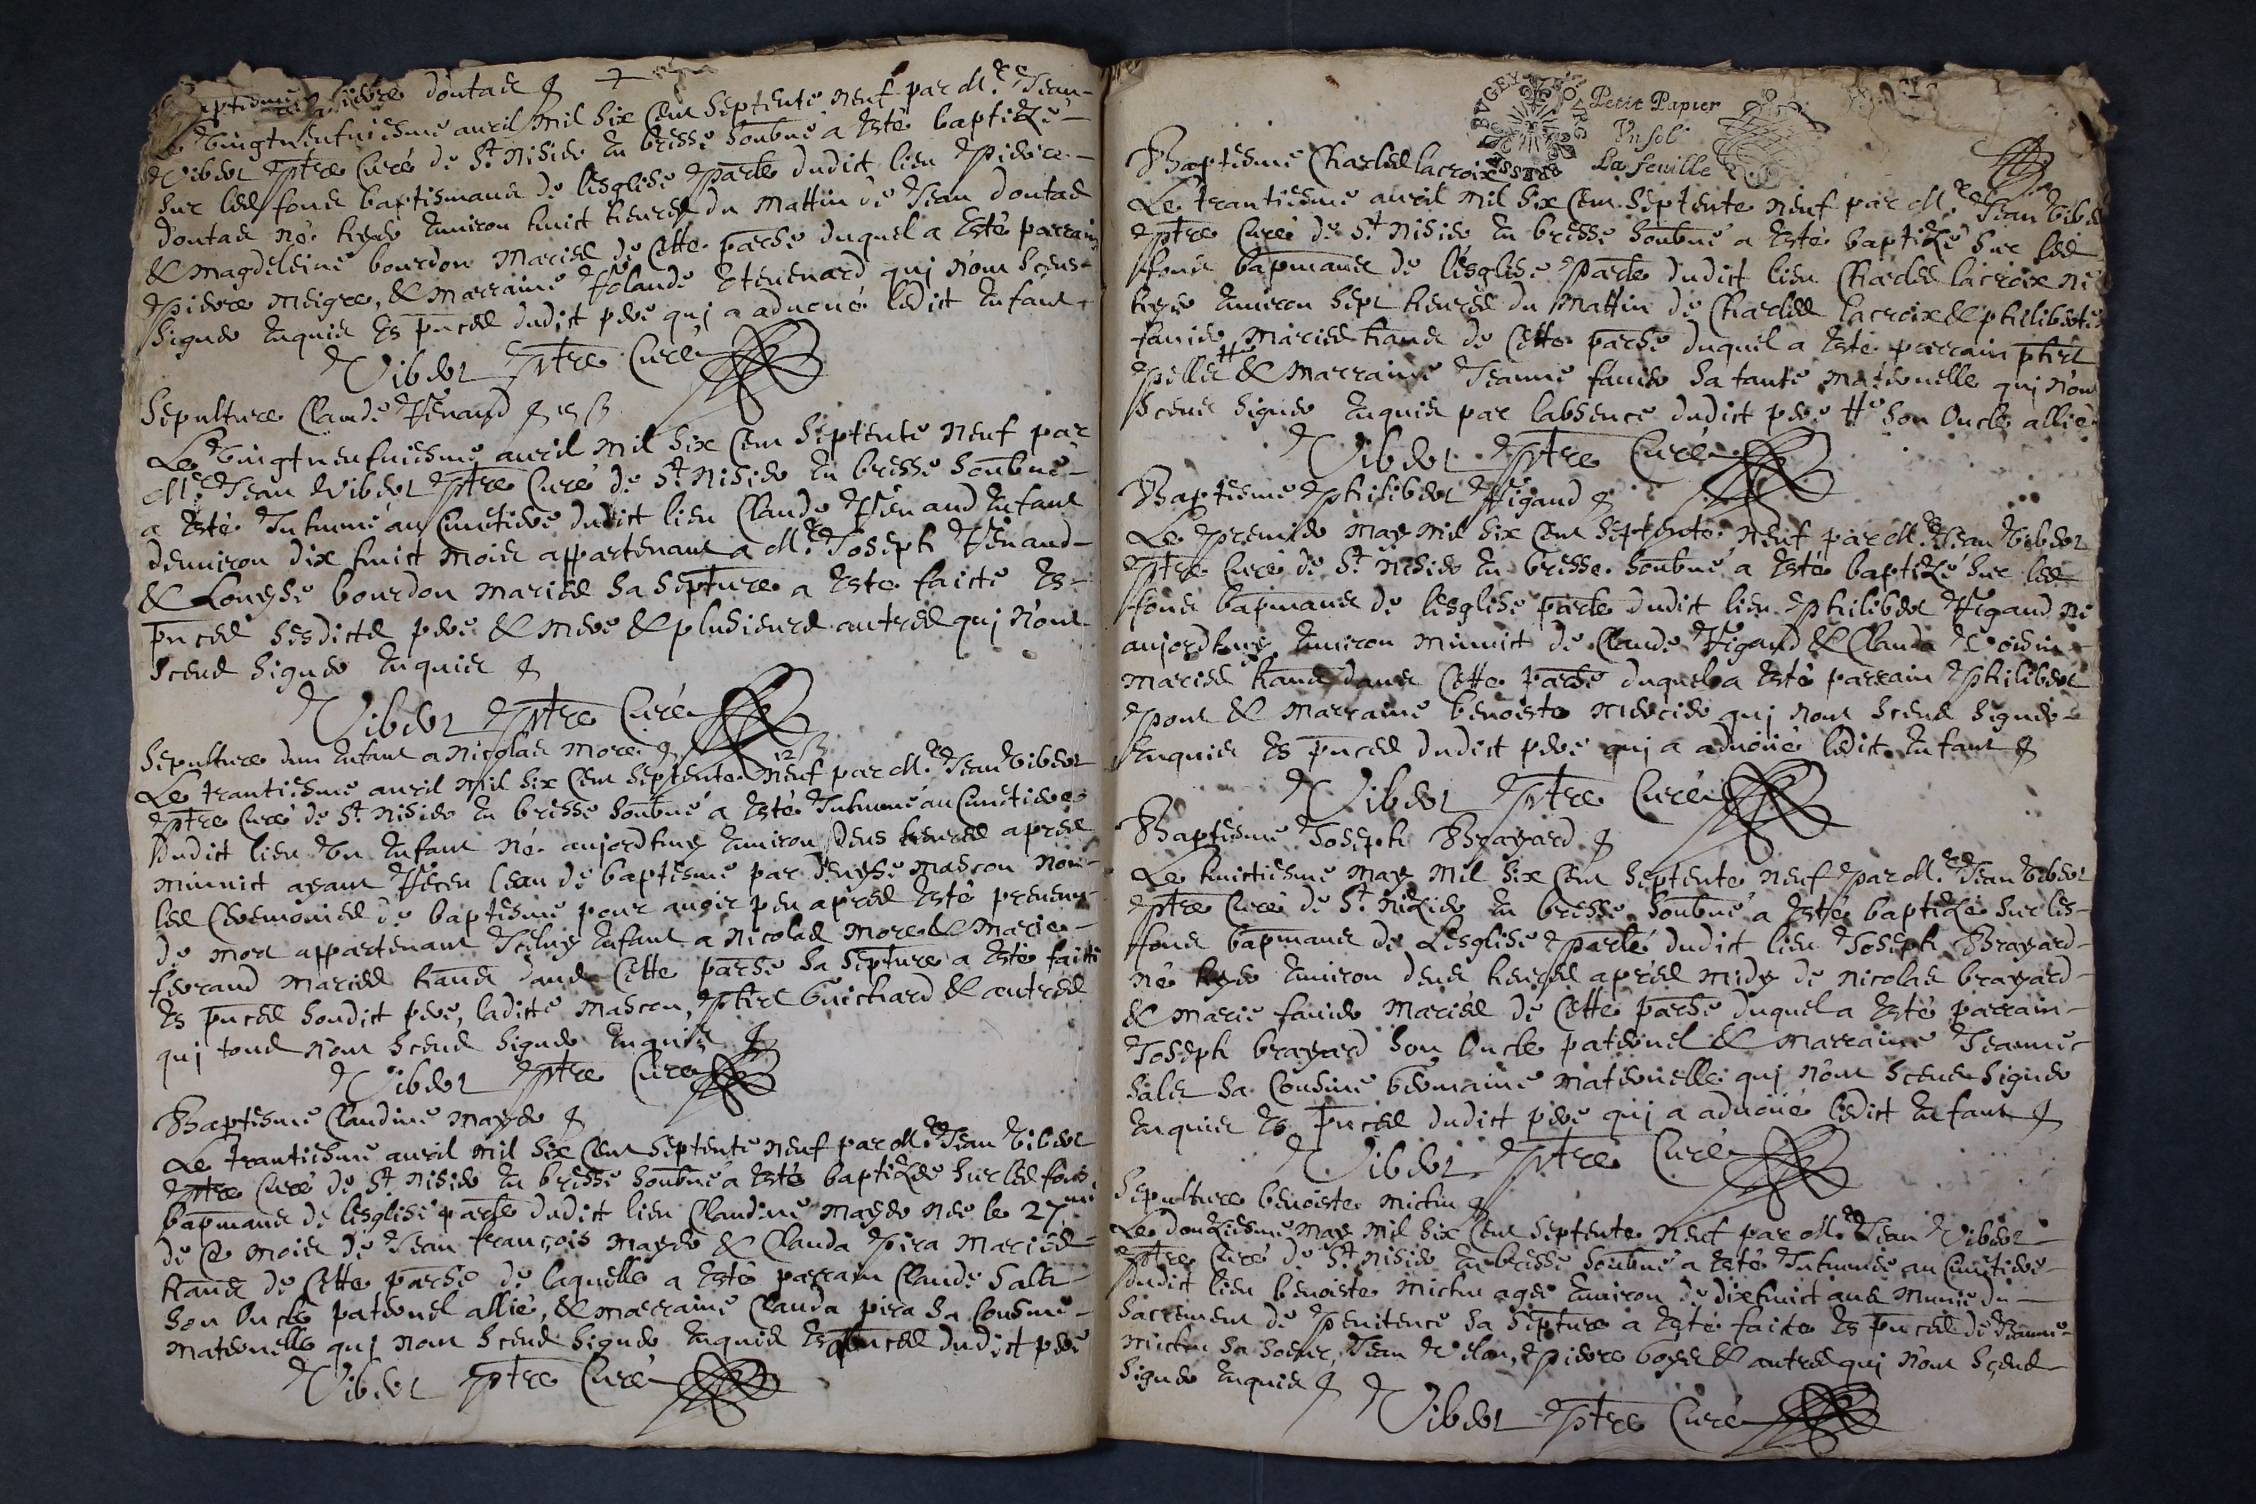 Baptesme pierre dontas
Le Vingtneufuiesme auril Mil six Cent Septente neuf par Mre Jean
Vibert ptre Curé de St Nisier En bresse soubné a Esté baptizé
sur les fons baptismaux de lesglise parle dudict lieu pierre
dontas né hyer Enuiron huict heures du Mattin de Jean dontas
& Magdeleine bourdon Mariés de Cette parse duquel a Esté parrain
pierre Meigre, & Marraine yolande qui n'ont sceus
signer Enquis Es pnces dudict pere qui a aduoué ledict Enfant
Vibert ptre Curé
Sepulture Claude Venand
Le Vingtneufuiesme auril Mil six Cent Septente Neuf par
Mre Jean Vibert ptre Curé de St Nisier En bresse soubné
a Esté Inhumé au Cimetiere dudict lieu Claude Venand Enfant
denuiron dix huict Mois appartenant a Mre Joseph Venand
& Louyse bourdon Mariés sa septure a Este faicte Es
pnces sesdicts pere & Mere & plusieurs autres qui n'ont
sceus signer Enquis
Vibert ptre Curé
12
Sepulture dun Enfant a Nicolas More
Le trantiesme auril Mil six Cent Septente Neuf par Mre Jean Vibert
ptre Curé de St Nisier En bresse soubné a Esté Inhumé au Cimetiere
dudict lieu Vn Enfant Né aujordhuy Enuiron Deus heures apres
Minuict ayant Receu leau de baptesme par Denyse Mascon Non
les Ceremonies de baptesme pour auoir peu apres Esté preuenu
de Mort appartenant Iceluy Enfant a Nicolas More & Marie
ferrand Mariés hans dans Cette parse sa septure a Esté faitte
Es pnces sondict pere, ladicte Mascon, phrt Guichard & autres
qui tous N'ont sceus signer Enquis
Vibert ptre Curé
Baptesme Claudine Mayer
Le trantiesme auril Mil six Cent Septente Neuf par Mre Jean Vibert
ptre Curé de St Nisier En bresse soubné a Esté baptizée sur les fons
bapmaux de lesglise parle dudict lieu Claudine Mayer Née le 27me
de Ce Mois de Jean françois Mayer & Clauda pira Mariés
hans de Cette parse de laquelle a Esté parrain Claude Sales
son Oncle paternel allié, & Marraine Clauda pira sa Cousine
Maternelle qui N'ont sceus signer Enquis Es pnces dudict pere
Vibert ptre Curé
BRESSE BVGEY
Petit Papier
Vn sol
La feuille
Baptesme Charles lacroix
Le trantiesme auril Mil six Cent Septente Neuf par Mre Jean Vibert
ptre Curé de St Nisier En bresse soubné a Esté baptizé sur les
fons bapmaux de lésglise parle dudict lieu Charles lacroix Né
hyer Enuiron sept heures du Mattin de Charles lacroix & philiberte
fauier Mariés hans de Cette parse duquel a Esté parrain phirt
pellet & Marraine Jeanne fauier sa tante Maternelle qui N'ont
sceus signer Enquis par labsence dudict pere # son Oncle allié
Vibert ptre Curé
Baptesme philibert Rigaud
Le premier May Mil six Cent Septente Neuf par Mre Jean Vibert
ptre Curé de St Nisier En bresse soubné a Esté baptizé sur les
fons bapmaux de lesglise parle dudict lieu philibert Rigaud Né
aujordhuy Enuiron Minuict de Claude Rigaud & Clauda Voisin
Mariés hans dans Cette parse duquel a Esté parrain philibert
pont & Marraine benoiste Mercier qui n'ont sceus signer
Enquis Es pnces dudict pere qui a aduoüé ledict Enfant
Vibert ptre Curé
Baptesme Joseph Brayard
Le huictiesme May Mil six Cent Septente Neuf par Mre Jean Vibert
ptre Curé de St Nizier En bresse soubné a Esté baptizé sur les
fons bapmaux de Lesglise parlé dudict lieu Joseph Brayard
Né hyer Enuiron deus heures apres Midy de Nicolas brayard
& Marie fauier Mariés de Cette parse duquel a Esté parrain
Joseph brayard son Oncle paternel & Marraine Jeanne
Sales sa Cousine Germaine Maternelle qui N'ont sceus signer
Enquis Es pnces dudict pere qui a aduoüé ledict Enfant
Vibert ptre Curé
Sepulture benoiste Michu
Le douziesme May Mil six Cent Septente Neuf par Mre Jean Vibert
ptre Curé de St Nisier En bresse soubné a Esté Inhumée au Cimetiere
dudict lieu benoiste Michu agée Enuiron de dixhuict ans Munie du
Sacrement de penitence sa septure a Esté faicte Es pnces de Jeanne
Michu sa soeur, Jean Velon, pierre boyer & autres qui N'ont sceus
signer Enquis
Vibert ptre Curé